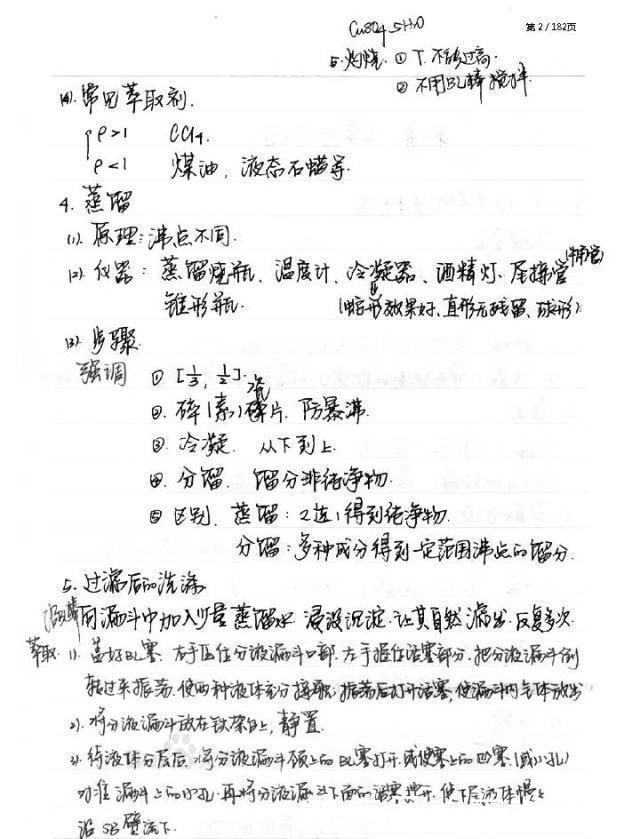 第2/182页
CuSO4·5H2O
5.灼烧.①T.不能过高.
②不用BL棒搅拌.
(4).常见萃取剂.
ρ>1 CCl4.
ρ<1 煤油,液态石蜡等.
4.蒸馏
(1).原理:沸点不同.
(2)仪器:蒸馏烧瓶、温度计、冷凝器、酒精灯、尾接管(牛角管)
锥形瓶. (蛇形效果好、直形无残留、球形)
(3)步骤.
强调 ①[1/3,1/2].
②.碎(素)瓷片.防暴沸.
③.冷凝.从下到上.
④.分馏.馏分非纯净物.
⑤区别.蒸馏:2选1得到纯净物.
分馏:多种成分得到一定范围沸点的馏分.
5.过滤后的洗涤
向漏斗中加入少量蒸馏水 浸没沉淀.让其自然滤出.反复多次.
萃取.1).盖好BL塞.右手压住分液漏斗口部.左手握住活塞部分.把分液漏斗倒
转过来振荡.使两种液体充分接触;振荡后打开活塞,使漏斗内气体放出
2).将分液漏斗放在铁架台上,静置.
3).待液体分层后.将分液漏斗颈上的BL塞打开.或使塞上的凹塞(或小孔)
对准漏斗上的小孔.再将分液漏斗下面的活塞拧开.使下层液体慢慢
沿SB壁流下.